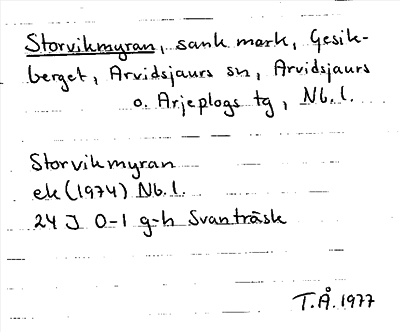 Storvikmyran, sank mark, Gesik-
berget, Arvidsjaurs sn, Arvidsjaurs
o. Arjeplogs tg, Nb. l.
Storvikmyran
ek (1974) Nb. l.
24 J 0-1 g-h Svanträsk
T.Å. 1977